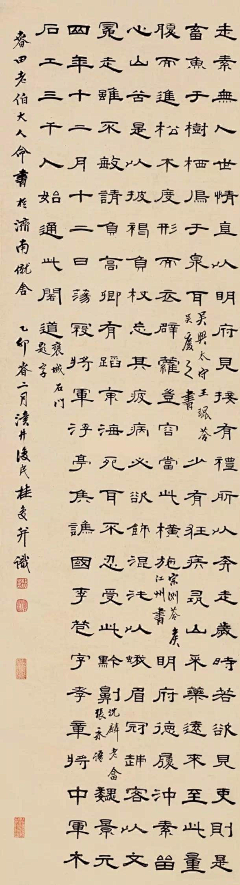 走素無人世情直以明府見接有禮所以奔走歲時若欲見吏則是
畜魚于樹栖鳥于泉耳
吳興太守王琨答
吳慶之書
少有狂疾尋山采藥遠來至此量
腹而進松木度形而衣薜蘿豈容當此橫施
江州書
明府德履沖素留
心山谷是以披褐負杖忘其疲病必欲飾混沌以蛾眉冠越客以文
冕走雖不敏請負高卿有蹈東海死耳不忍受此黥劓
張永書
魏景元
四年十二月十二日蕩寇將軍浮亭侯譙國李苞字孝章將中軍木
石工三千人始通此閣道
褒城石門
題字
春田老伯大人命書於濟南僦舍 乙卯春二月瀆井復民桂馥并識